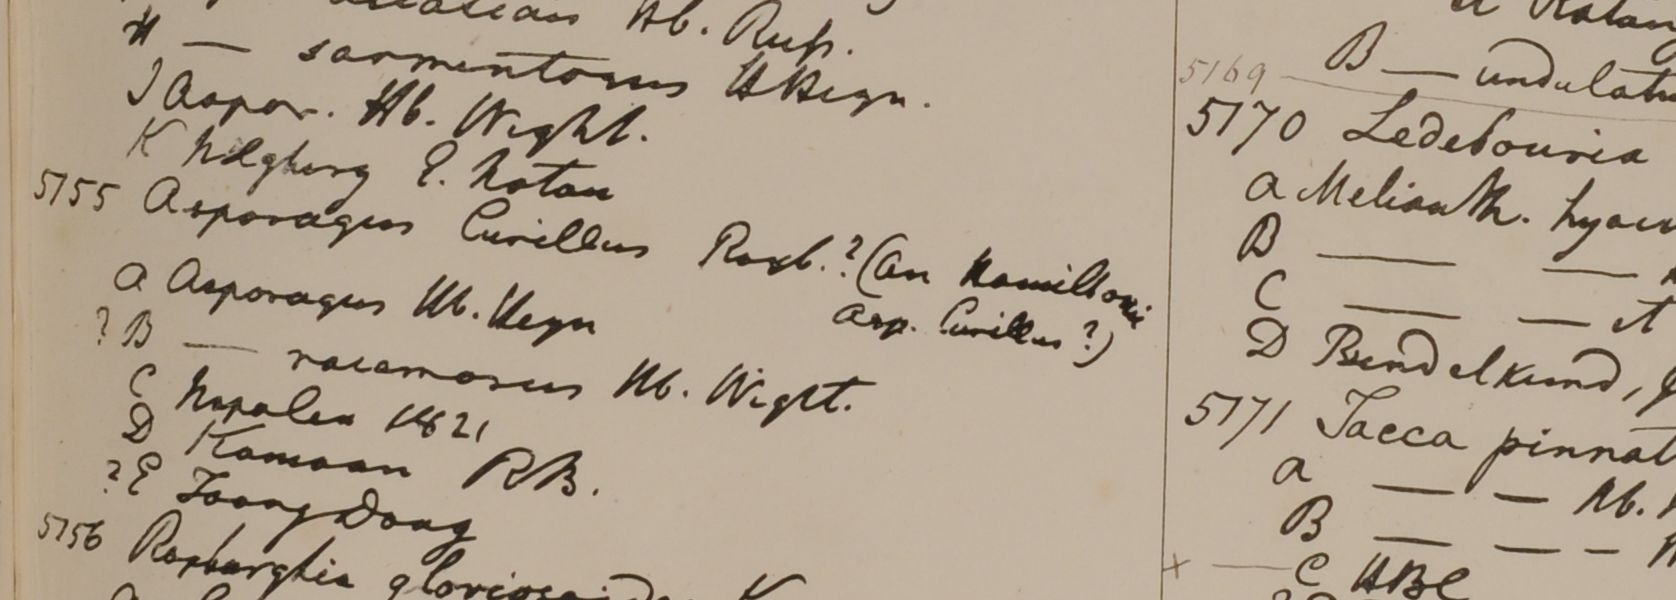 Hb. Rusp.
H — sarmentosus HHeyn.
J Aspar. Hb. Wight.
K E. Notan
5155 Asparagus Curillus Roxb.? (an Hamiltonii
Asp. Curillus?)
a Asparagus Hb. Heyn
? B — racemosus Hb. Wight.
C Napalea 1821
D Kamaon RB.
? E Taong Dong
5156 Roxburghia
B — undulatu
5169
5170 Ledebouria
a Melianth. hyac
B — —
C — —
D Bundelkund,
5171 Tacca pinnat
a — — Hb.
B — — –
× — C HBC